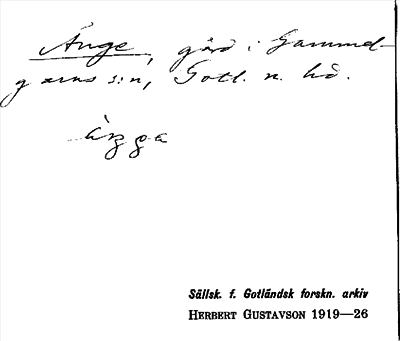 Änge, gård i Gammel-
garns s:n, Gotl. n. hd.
äŋga
Sällsk. f. Gotländsk forskn. arkiv
HERBERT GUSTAVSON 1919—26